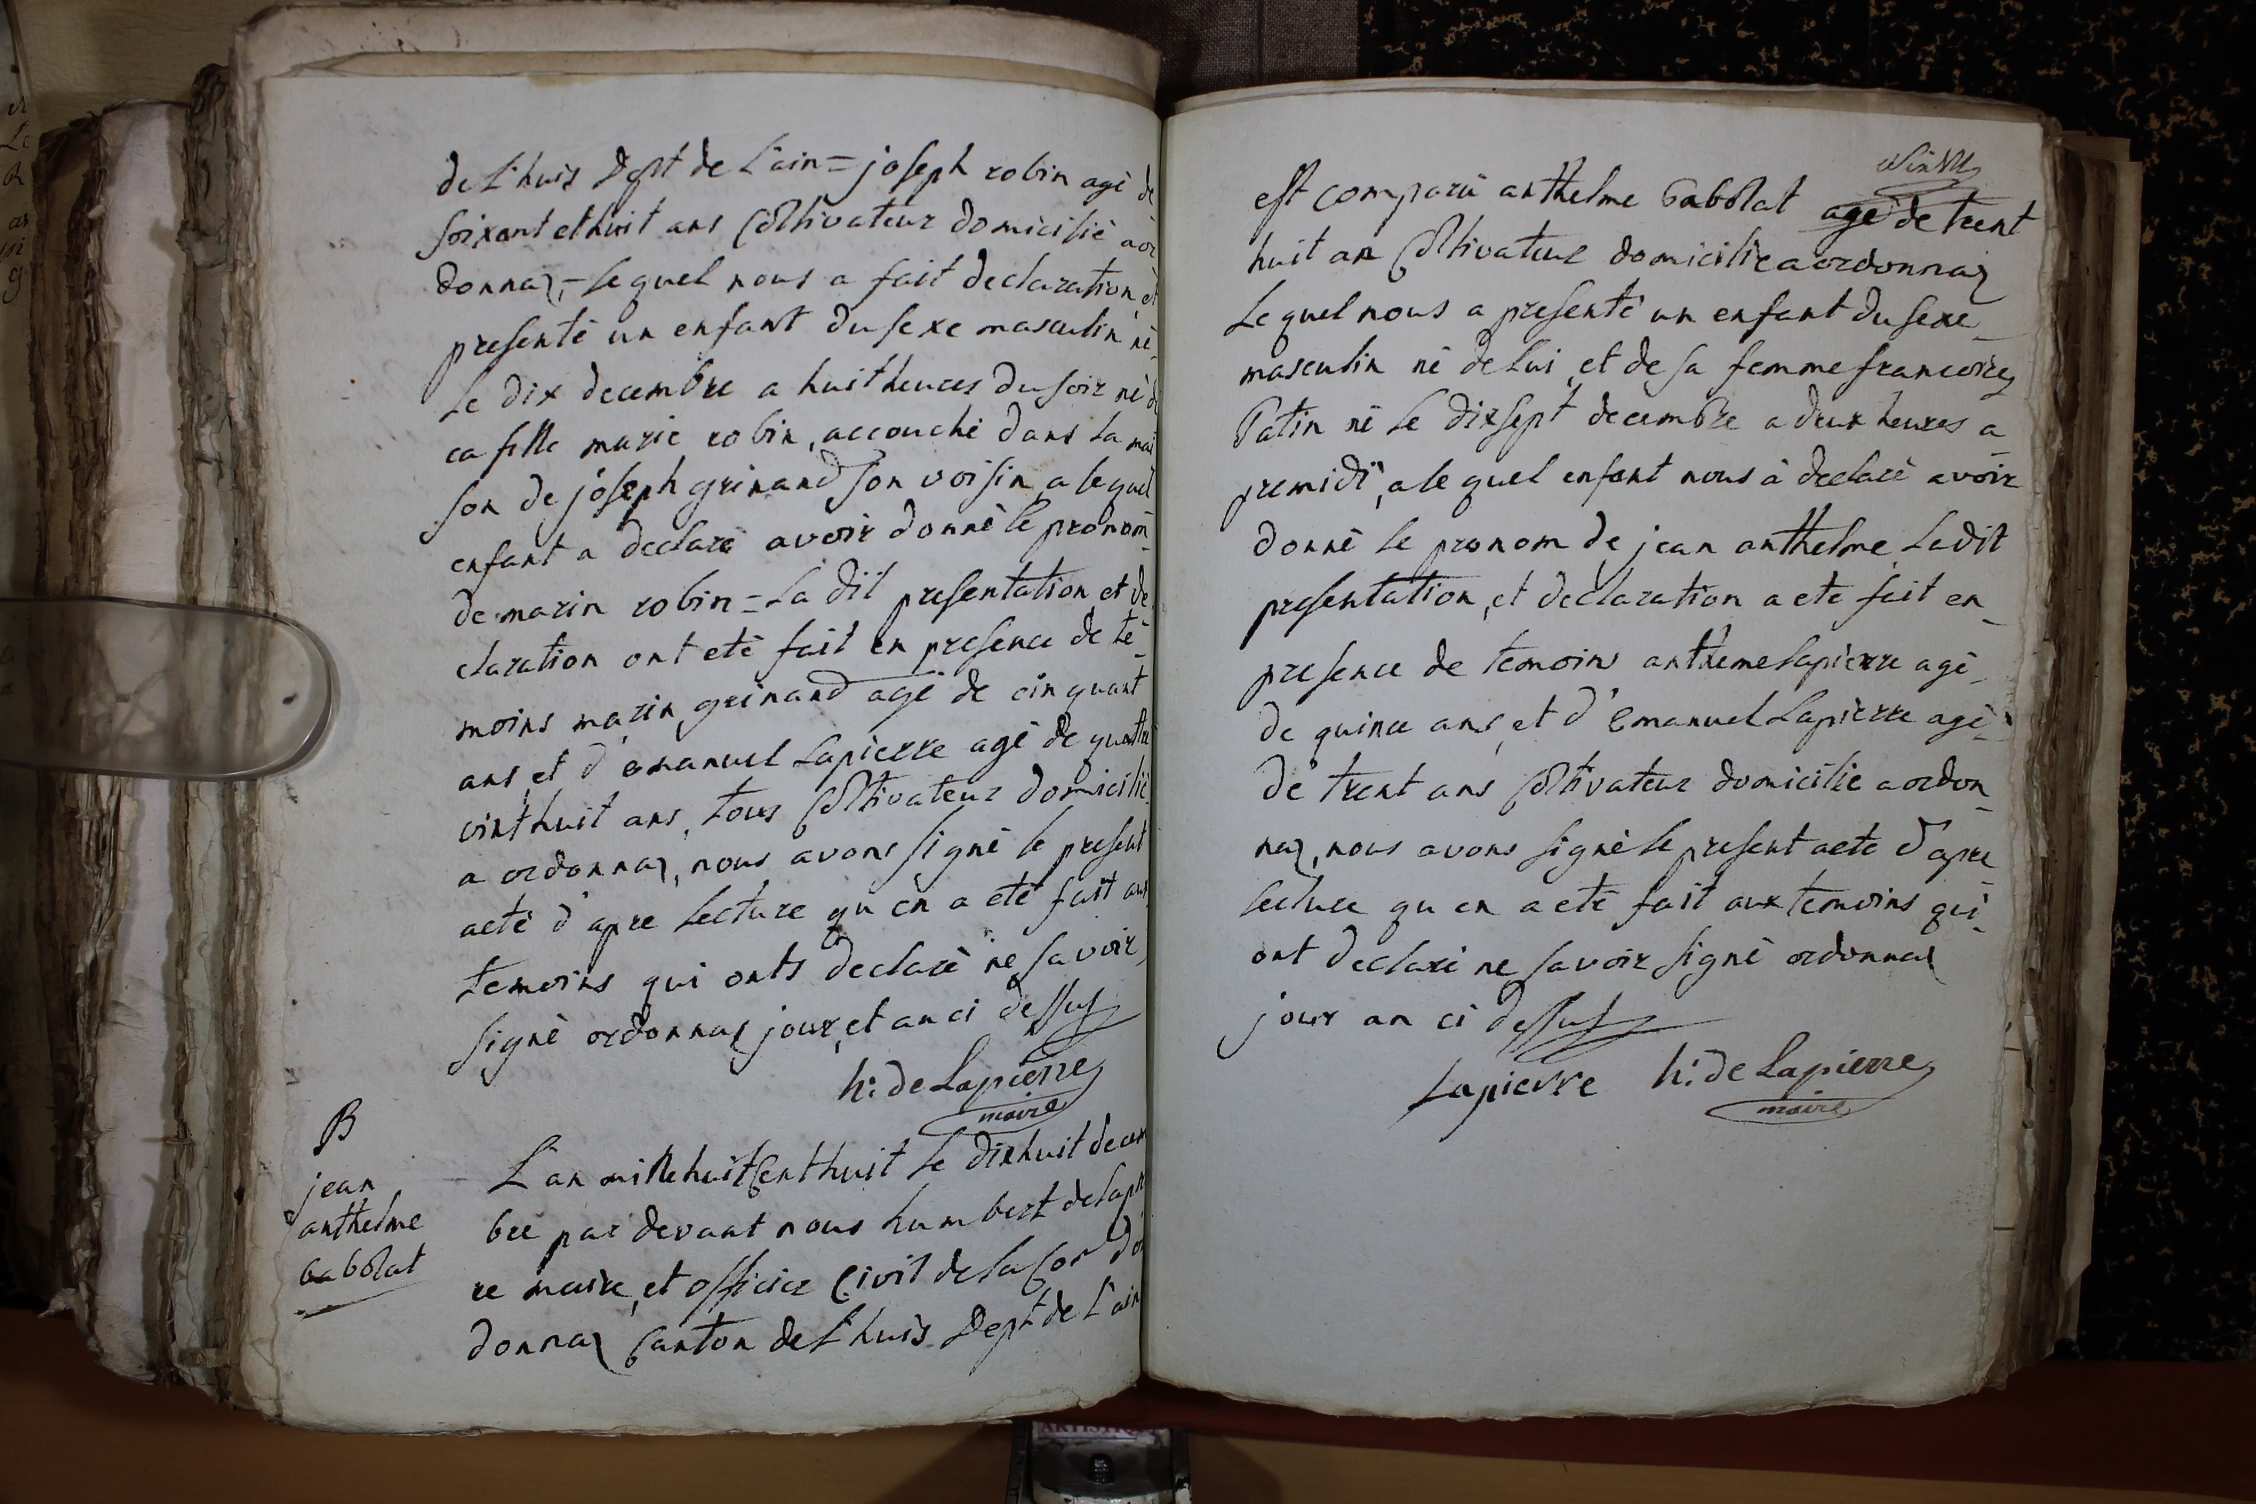 de L'huis Dept de L'ain = joseph robin agé de
soixant et huit ans Coltivateur domicilié a or
donnaz, - lequel nous a fait declaration et
presenté un enfant du sexe masculin né
le dix decembre a huit heures du soir né de
ca fille marie robin, accouché dans la mai
son de joseph grinand son voisin, a lequel
enfant a declaré avoir donné le pronom
de marin robin = La dit presentation et de
claration ont eté fait en presence de té
moins marin grinand agé de cinquant
ans, et d'emanuel Lapierre agé de quattre
vint huit ans, tous Coltivateur domicilié
a ordonnaz, nous avons signé le present
acte d'apre Lecture qu'en a eté fait aux
temoins qui onts declaré ne savoir
signé ordonnaz jour, et an ci dessus
h: de Lapierre
maire
B
jean
anthelme
babolat
L'an mille huit Cent huit le dix huit decem
bre par devant nous humbert de Lapier
re maire, et officier Civil de la Con d'or
donnaz Canton de L'huis Dept de L'ain
est comparü anthelme babolat agé de trent
huit an Coltivateur domicilie a ordonnaz
Lequel nous a presenté un enfant du sexe
masculin né de Lui, et de sa femme francoise
Patin né le dix sept decembre a deux heures a
premidi, a lequel enfant nous à declaré avoir
donné le pronom de jean anthelme Ladit
presentation, et declaration a ete fait en
presence de temoins anthelme Lapierre agé
de quince ans, et d'Emanuel Lapierre agé
de trent ans Coltivateur domicilie a ordon
naz, nous avons signé le present acte d'apre
Lecture qu'en a eté fait aux temoins qui
ont declaré ne savoir signé ordonnaz
jour an ci dessus
Lapierre h: de Lapierre
maire